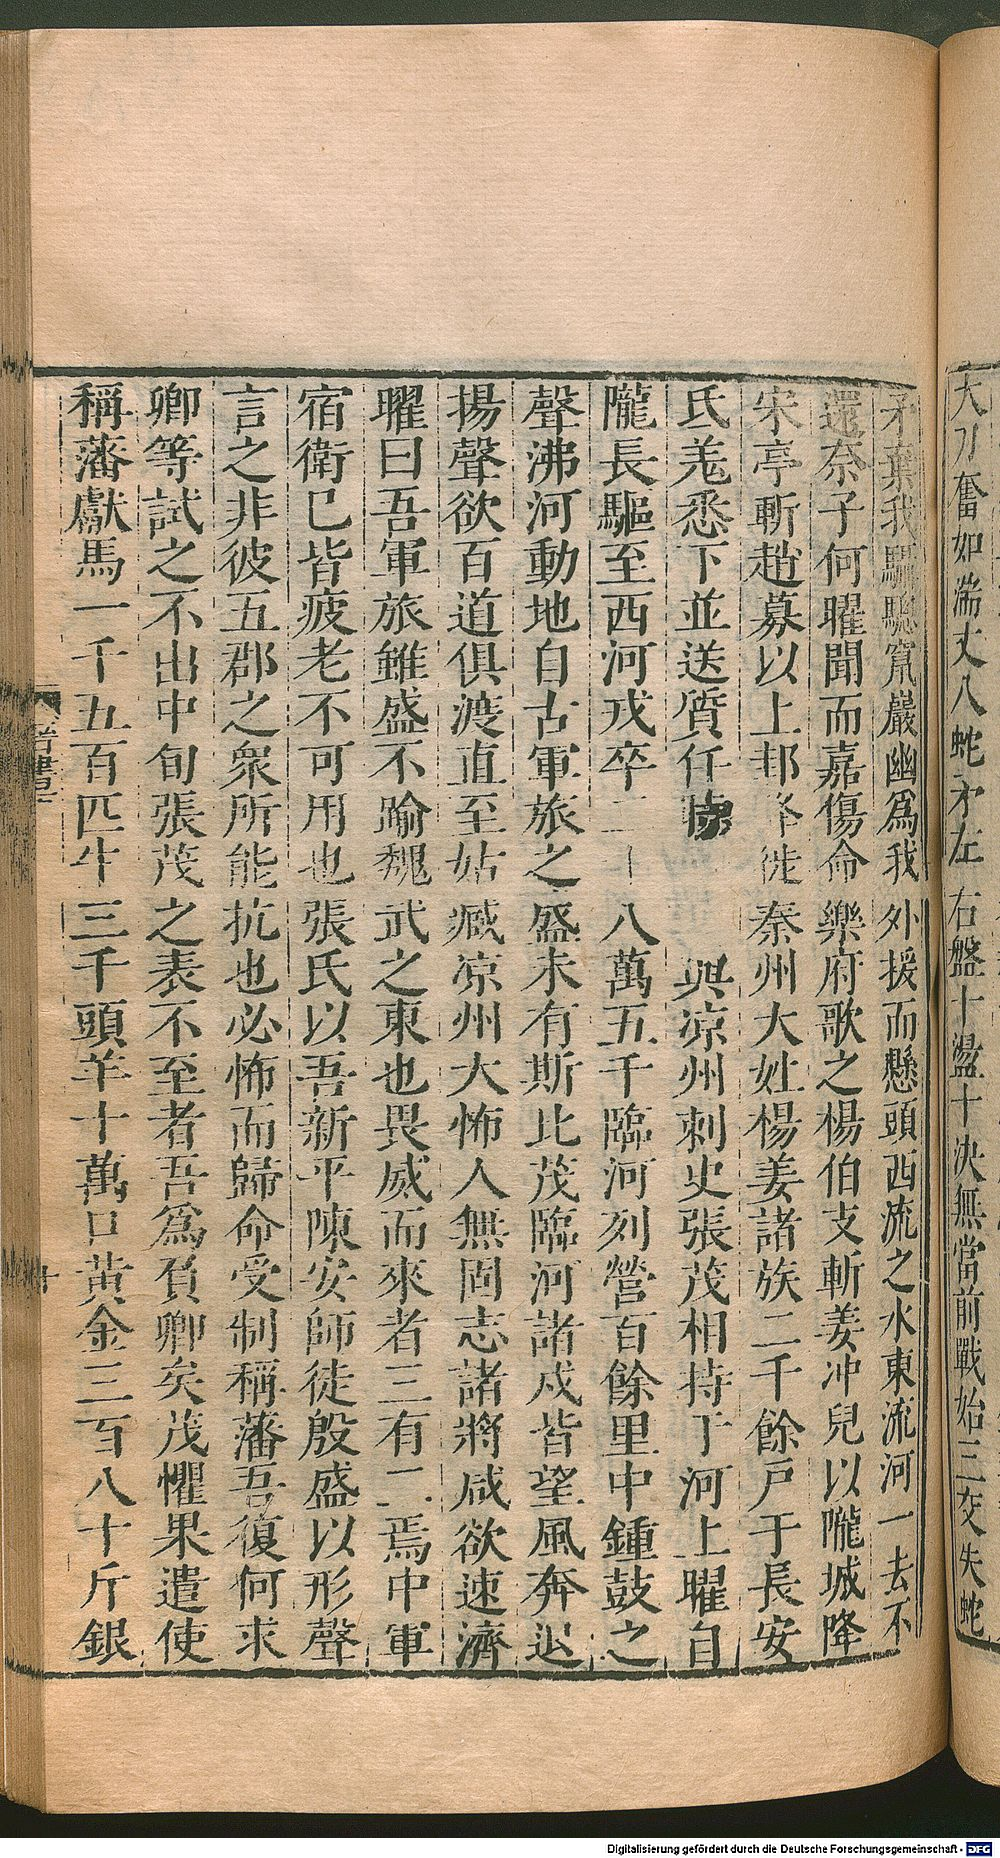 大刀奮如湍丈八蛇矛左右盤十盪十決無當前戰始三交失蛇
矛棄我驪驄竄巖幽爲我外援而懸頭西流之水東流河一去不
還奈子何曜聞而嘉傷命樂府歌之楊伯支斬姜沖兒以隴城降
宋亭斬趙募以上邽降徙秦州大姓楊姜諸族二千餘戸于長安
氐羌悉下並送質任時 與凉州刺史張茂相持于河上曜自
隴長驅至西河戎卒二十八萬五千臨河列營百餘里中鍾鼓之
聲沸河動地自古軍旅之盛未有斯比茂臨河諸戍皆望風奔退
揚聲欲百道俱渡直至姑臧凉州大怖人無固志諸將咸欲速濟
曜曰吾軍旅雖盛不踰魏武之東也畏威而來者三有二焉中軍
宿衛已皆疲老不可用也張氏以吾新平陳安師徒殷盛以形聲
言之非彼五郡之衆所能抗也必怖而歸命受制稱藩吾復何求
卿等試之不出中旬張茂之表不至者吾爲負卿矣茂懼果遣使
稱藩獻馬一千五百匹牛三千頭羊十萬口黄金三百八十斤銀
Digitalisierung gefördert durch die Deutsche Forschungsgemeinschaft - DFG